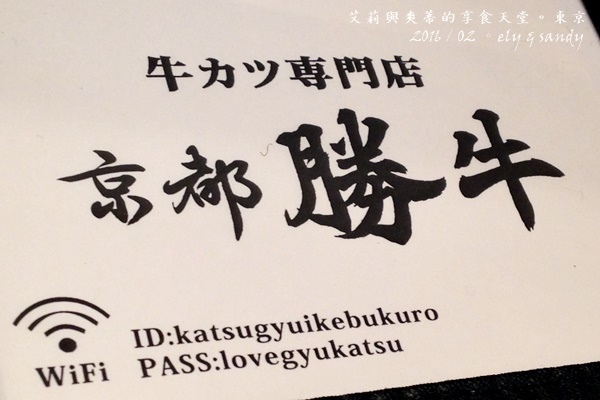 艾莉與爽蒂的享食天堂。東京
2016 / 02。ely & sandy
牛カツ専門店
京都 勝牛
WiFi
ID:katsugyuikebukuro
PASS:lovegyukatsu